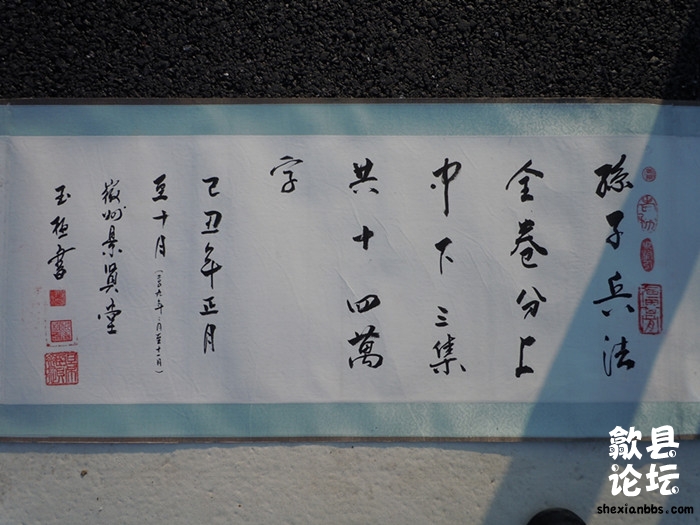 孫子兵法
全卷分上
中下三集
共十四萬
字
己丑年正月
至十月
徽州景賢堂
玉極書
歙县
论坛
shexianbbs.com